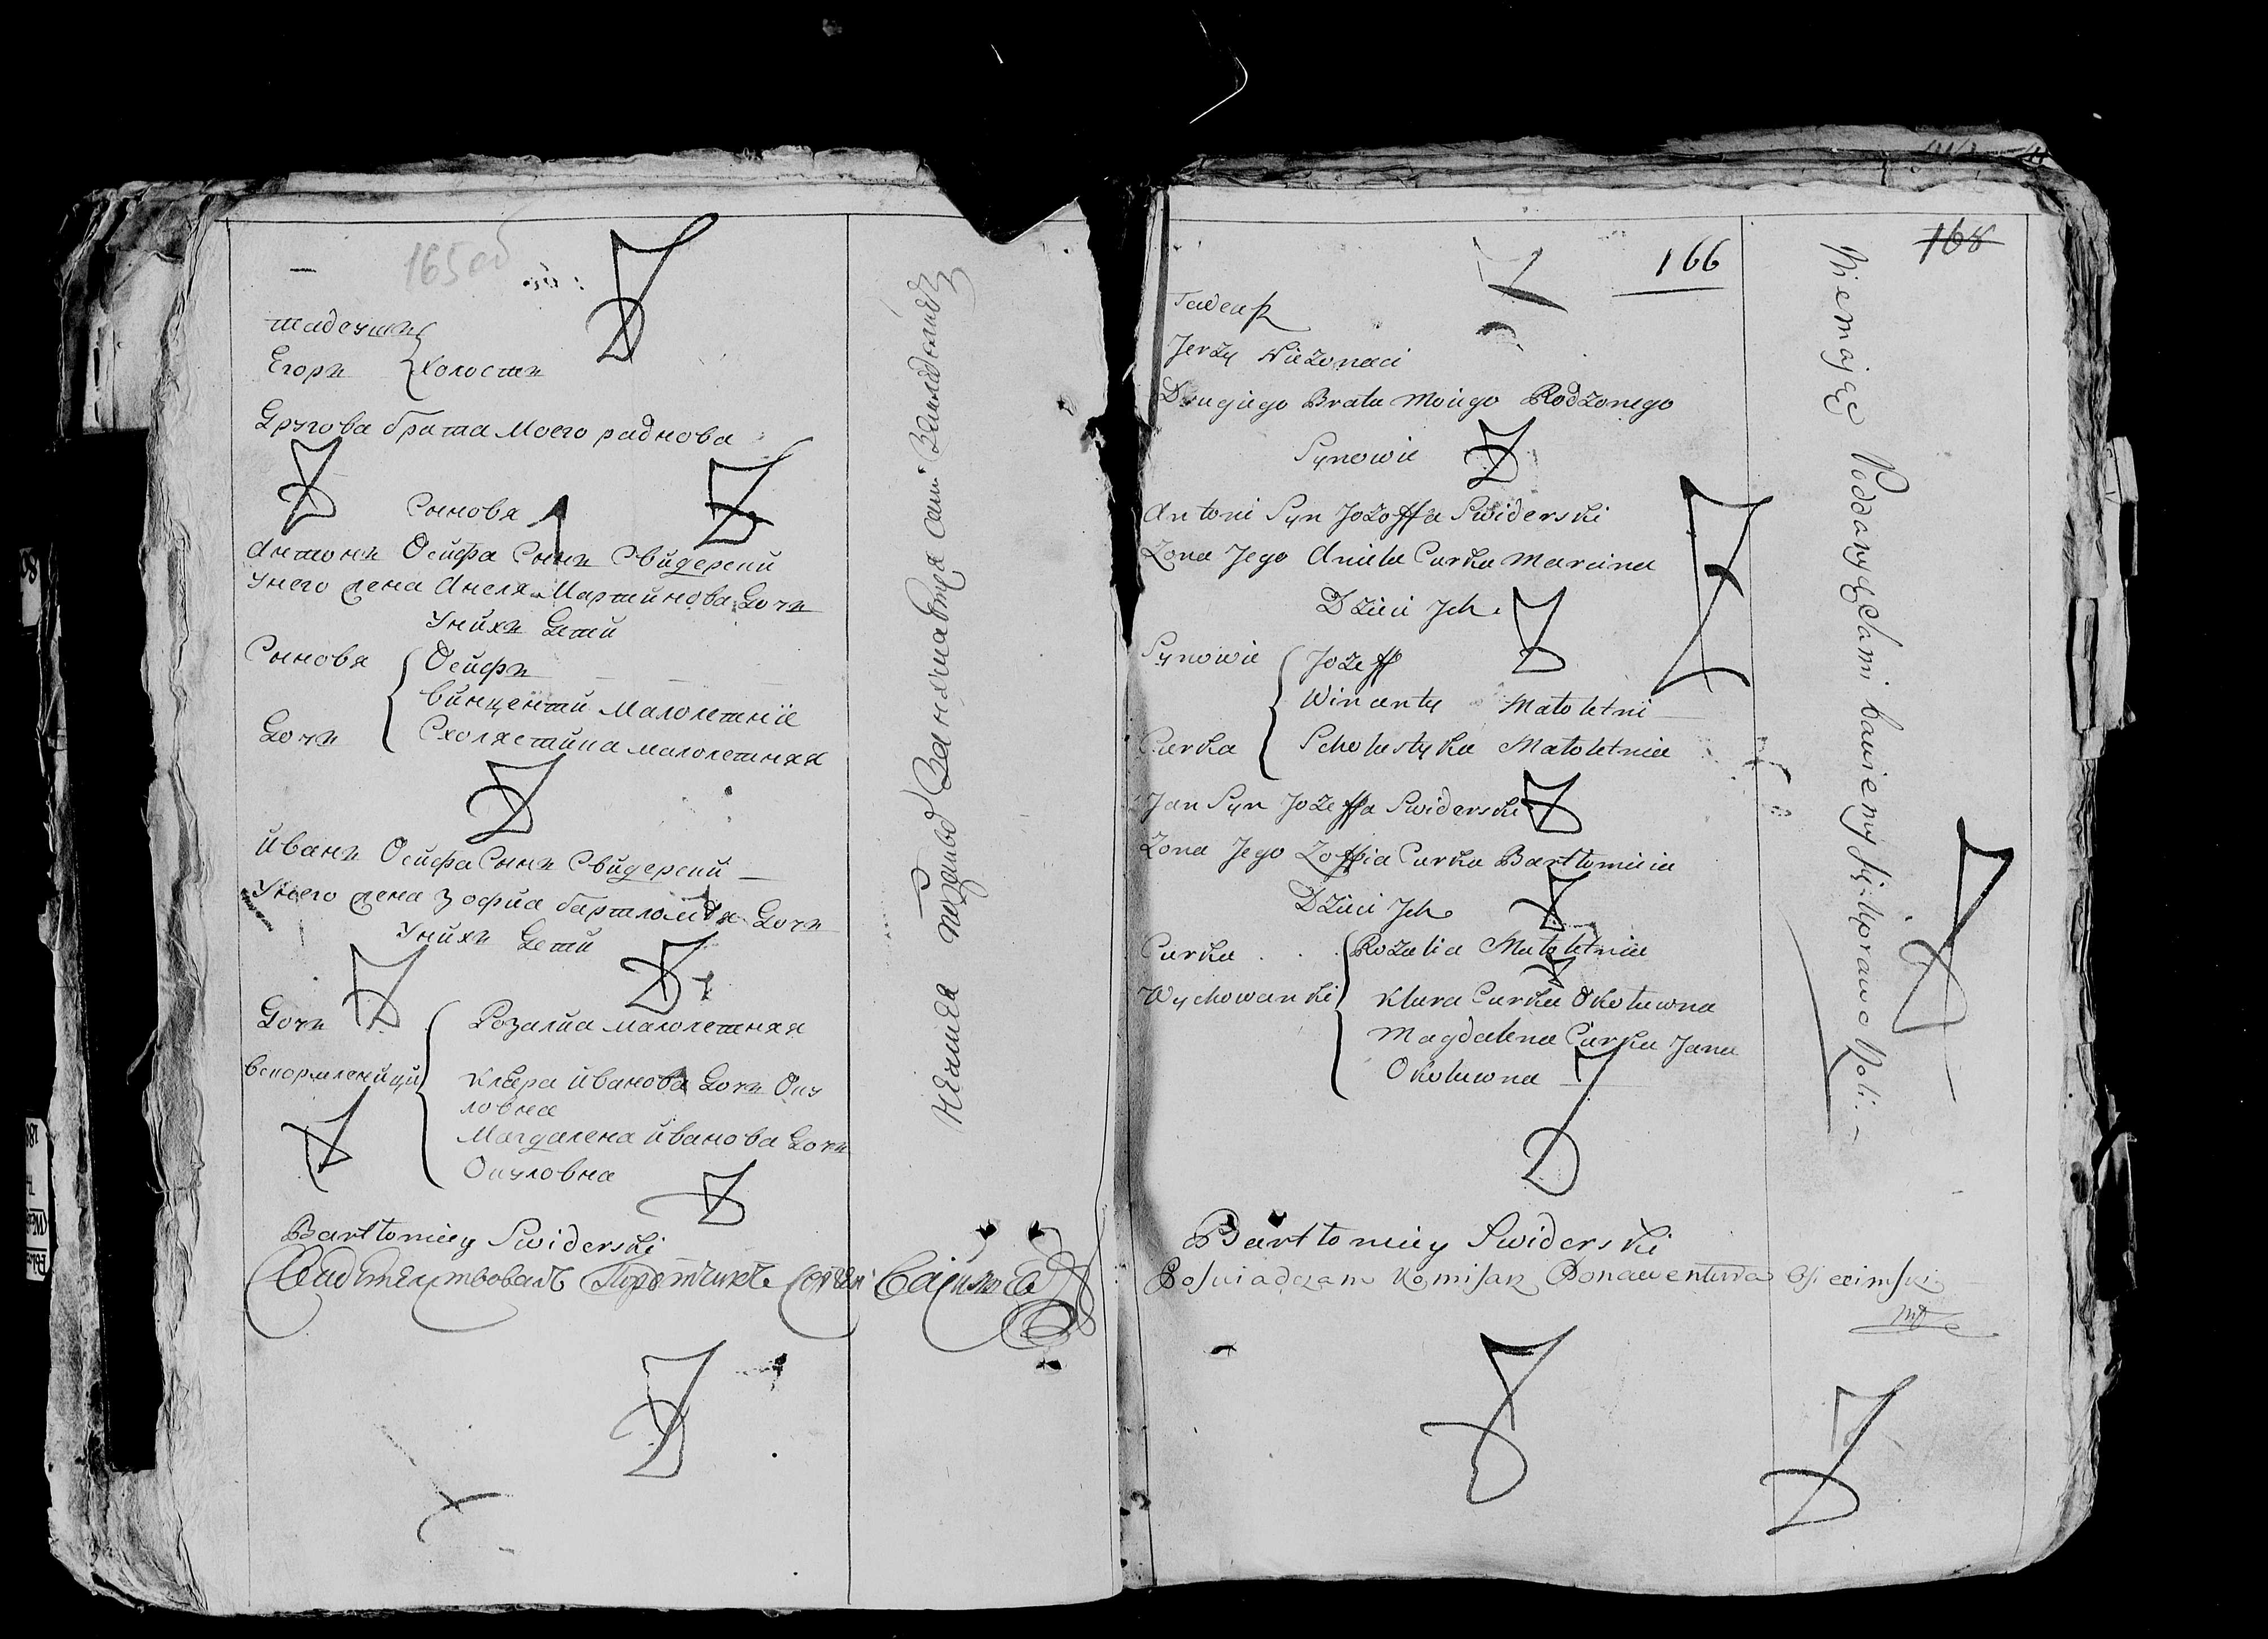 165 об
тадеушъ
Егоръ холостъ
Другова брата моего раднова
Сыновя
Антонъ Осифа Сынъ Свидерски
Унего жена Анеля Мартинова Дочъ
Унихъ Дети
Сыновя Осифъ
Винцентй малолетние
Дочъ Схолястика малолетняя
Иванъ Осифа Сынъ Свидерски
Унего жена Зофиа бартломѣя Дочъ
Унихъ Дети
Дочъ Розалиа малолетняя
вскормленици Клара Иванова Дочъ Оку
ловна
Магдалена Иванова Дочъ
Окуловна
Bartłomiey Swiderski
Свидетельствовалъ
166
168
Tadeusz
Jerzy Niezonaci
Drugiego Brata Moiego Rodzonego
Synowie
Antoni Syn Jozeffa Swiderski
Zona Jego Aniela Curka Marcina
Dzieci Jch
Synowie Jozeff
Wincenty Małoletni
Curka Scholastyka Małoletnia
Jan Syn Jozeffa Swiderski
Zona Jego Zoffia Curka Bartłomieia
Dzieci Jch
Curka Rozalia Małoletnia
Wychowanki Klara Curka Okołuwna
Magdalena Curka Jana
Okołuwna
Bartłomiey Swiderski
Poswiadczam Komisarz Bonawentura
Niemaięc Poddanych sami bawiemy się Uprawo Roli